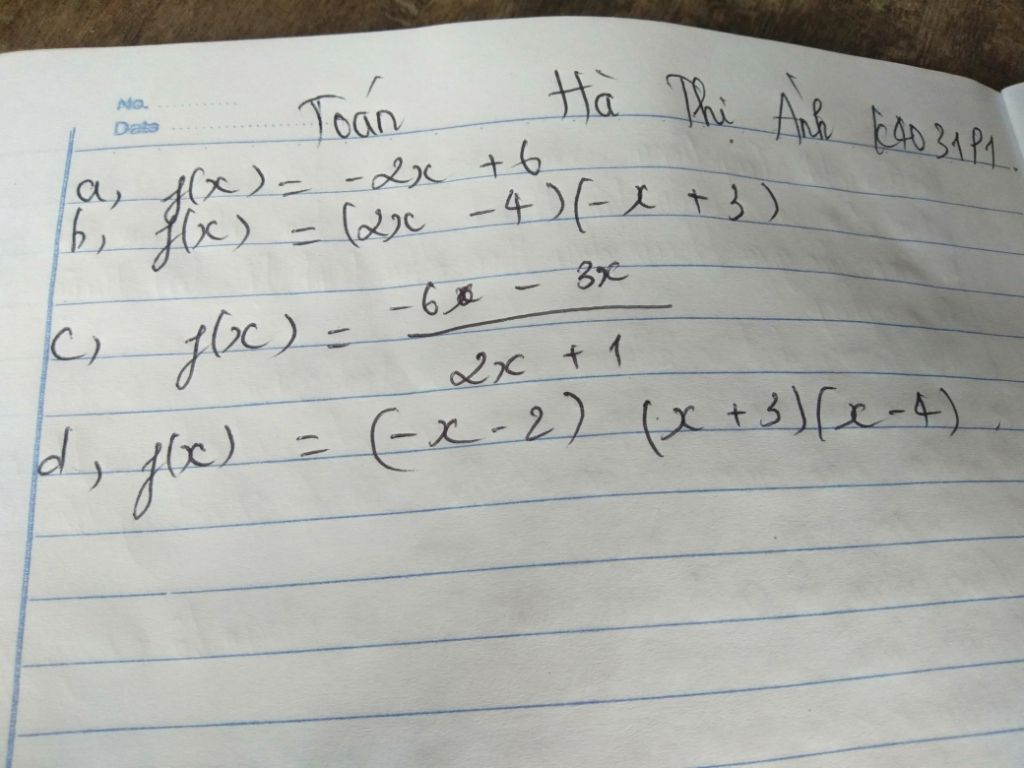 No. ............
Date ........................
Toán Hà Thị Ánh K4031P1.
a, f(x) = -2x + 6
b, f(x) = (2x - 4)(-x + 3)
c, f(x) = \frac{-6 - 3x}{2x + 1}
d, f(x) = (-x - 2) (x + 3)(x - 4).